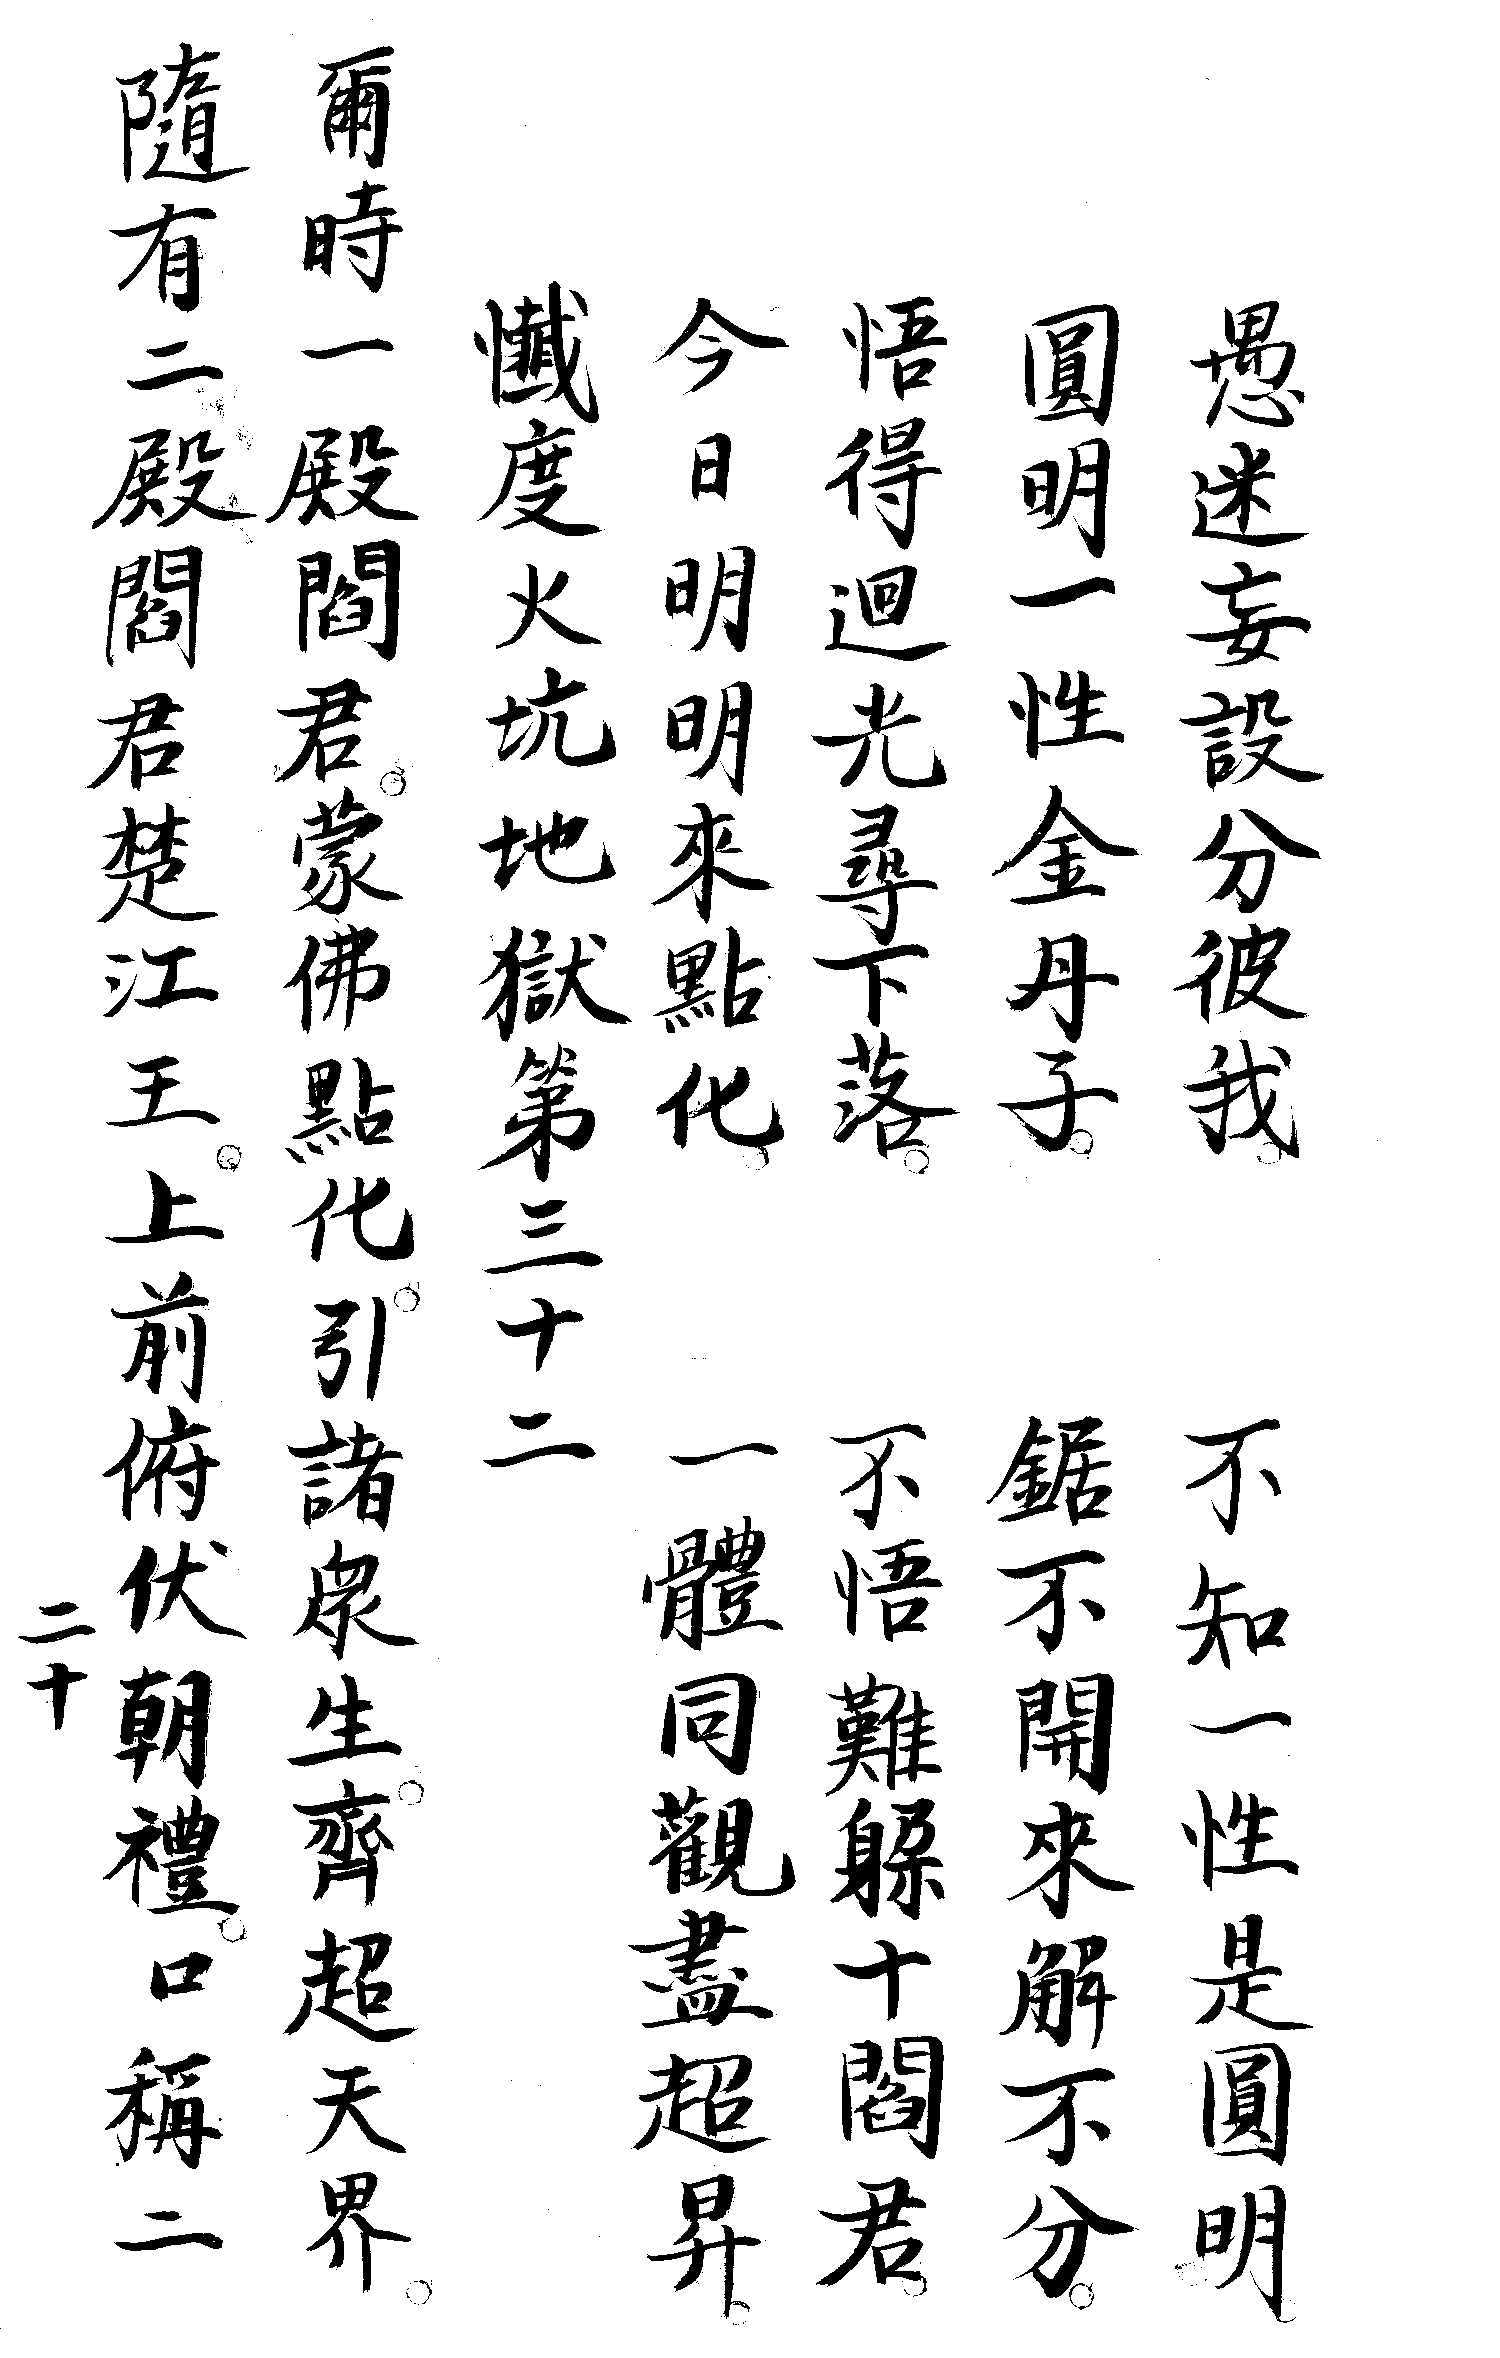 愚迷妄設分彼我。　不知一性是圓明。
圓明一性金丹子。　鋸不開來解不分。
悟得迴光尋下落。　不悟難躲十閻君。
今日明明來點化。　一體同觀盡超昇。
懺度火坑地獄第三十二
爾時一殿閻君。蒙佛點化。引諸眾生。齊超天界。
隨有二殿閻君楚江王。上前俯伏朝禮。口稱二
二十